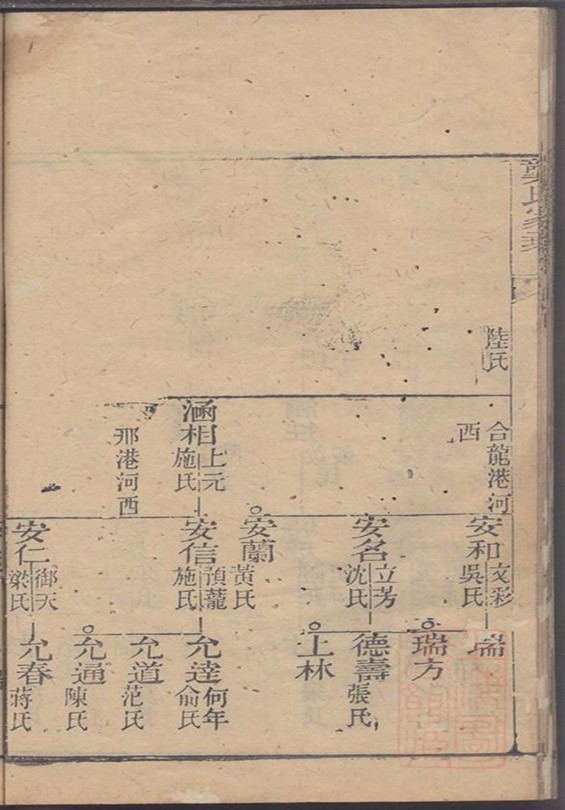 龔氏家
陸氏
合龍港河
西
涵相 上元
施氏
那港河西
安和 文彩
吳氏
安名 立芳
沈氏
安蘭
黃氏
安信 預龍
施氏
安仁 御天
梁氏
瑞
瑞方
德壽
張氏
上林
允逵 何年
俞氏
允道
范氏
允通
陳氏
允春
蔣氏